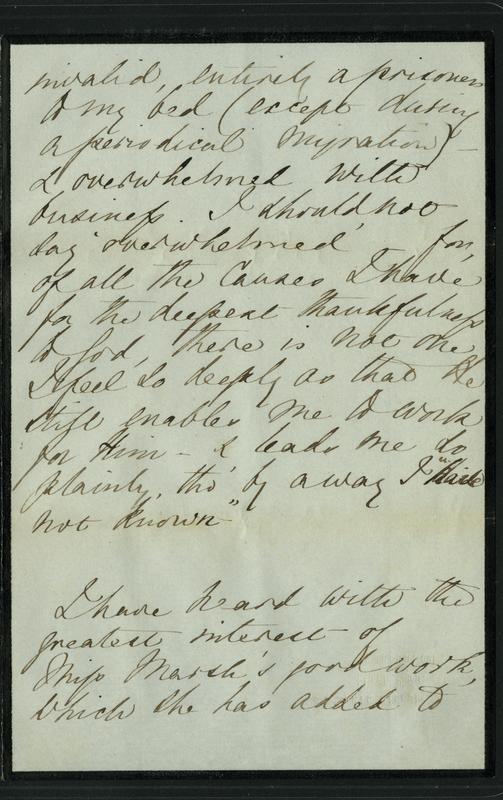 invalid, entirely a prisoner
to my bed (except during
a periodical migration) -
& overwhelmed with
business. I should not
say "overwhelmed", for,
of all the Causes I have
for the deepest thankfulness
to God, there is not one
I feel so deeply as that He
still enables me to work
for Him - & leads me so
plainly, tho' "by a way I
not known"
I have heard with the
greatest interest of
Miss Marsh's good work,
which she has added to